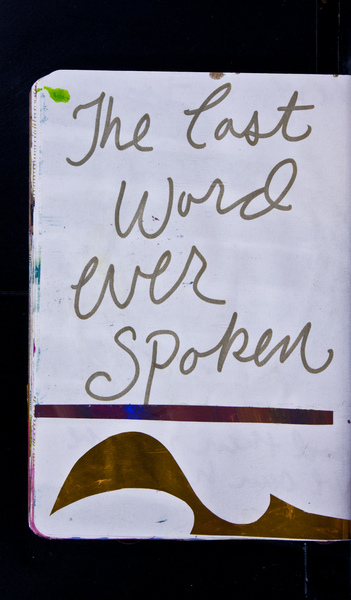 The last
Word
ever
Spoken